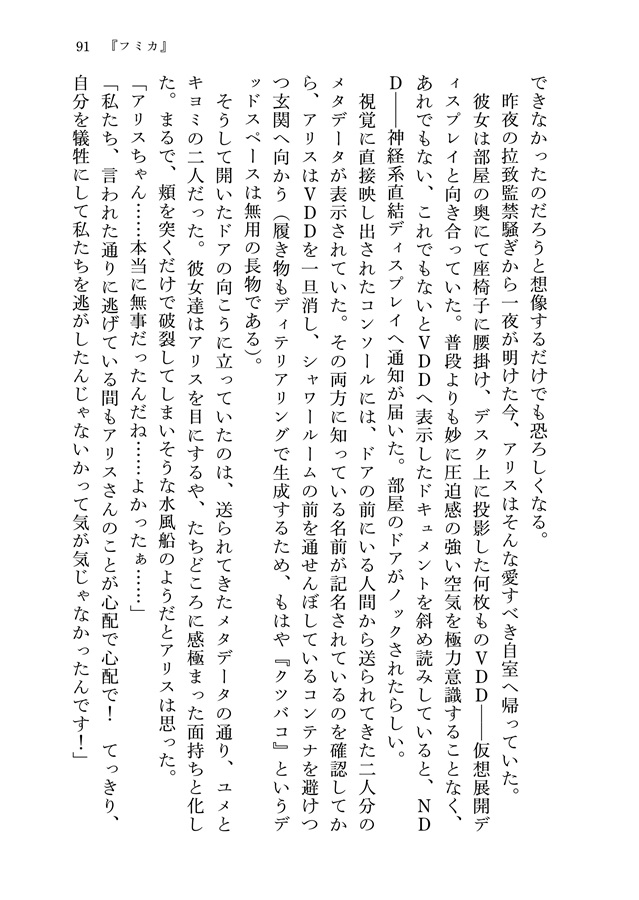 91　『フミカ』
できなかったのだろうと想像するだけでも恐ろしくなる。
　昨夜の拉致監禁騒ぎから一夜が明けた今、アリスはそんな愛すべき自室へ帰っていた。
　彼女は部屋の奥にて座椅子に腰掛け、デスク上に投影した何枚ものＶＤＤ――仮想展開デ
ィスプレイと向き合っていた。普段よりも妙に圧迫感の強い空気を極力意識することなく、
あれでもない、これでもないとＶＤＤへ表示したドキュメントを斜め読みしていると、ＮＤ
Ｄ――神経系直結ディスプレイへ通知が届いた。部屋のドアがノックされたらしい。
　視覚に直接映し出されたコンソールには、ドアの前にいる人間から送られてきた二人分の
メタデータが表示されていた。その両方に知っている名前が記名されているのを確認してか
ら、アリスはＶＤＤを一旦消し、シャワールームの前を通せんぼしているコンテナを避けつ
つ玄関へ向かう（履き物もディテリアリングで生成するため、もはや『クツバコ』というデ
ッドスペースは無用の長物である）。
　そうして開いたドアの向こうに立っていたのは、送られてきたメタデータの通り、ユメと
キヨミの二人だった。彼女達はアリスを目にするや、たちどころに感極まった面持ちと化し
た。まるで、頬を突くだけで破裂してしまいそうな水風船のようだとアリスは思った。
「アリスちゃん……本当に無事だったんだね……よかったぁ……」
「私たち、言われた通りに逃げている間もアリスさんのことが心配で心配で！　てっきり、
自分を犠牲にして私たちを逃がしたんじゃないかって気が気じゃなかったんです！」